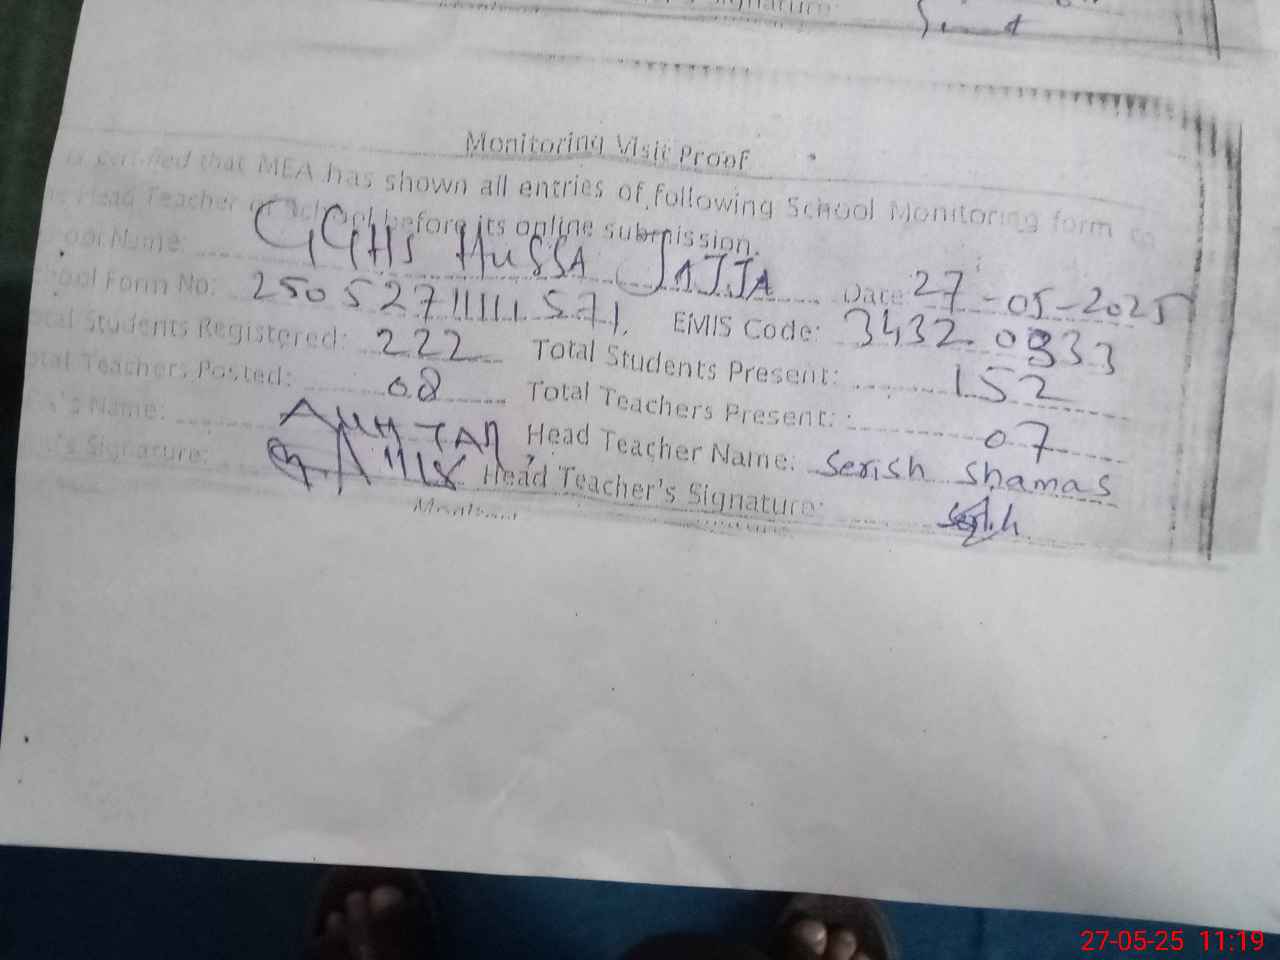 Monitoring Visit Proof
certified that MEA has shown all entries of following School Monitoring form to
Head Teacher of School before its online submission.
ool Name: GGHS HUSSA JAJJA Date: 27-05-2025
ool Form No: 250527111111571 EMIS Code: 34320333
tal Students Registered: 222 Total Students Present: 152
tal Teachers Posted: 08 Total Teachers Present: 07
's Name: Head Teacher Name: Serish Shamas
's Signature: Head Teacher's Signature: Serish
27-05-25 11:19